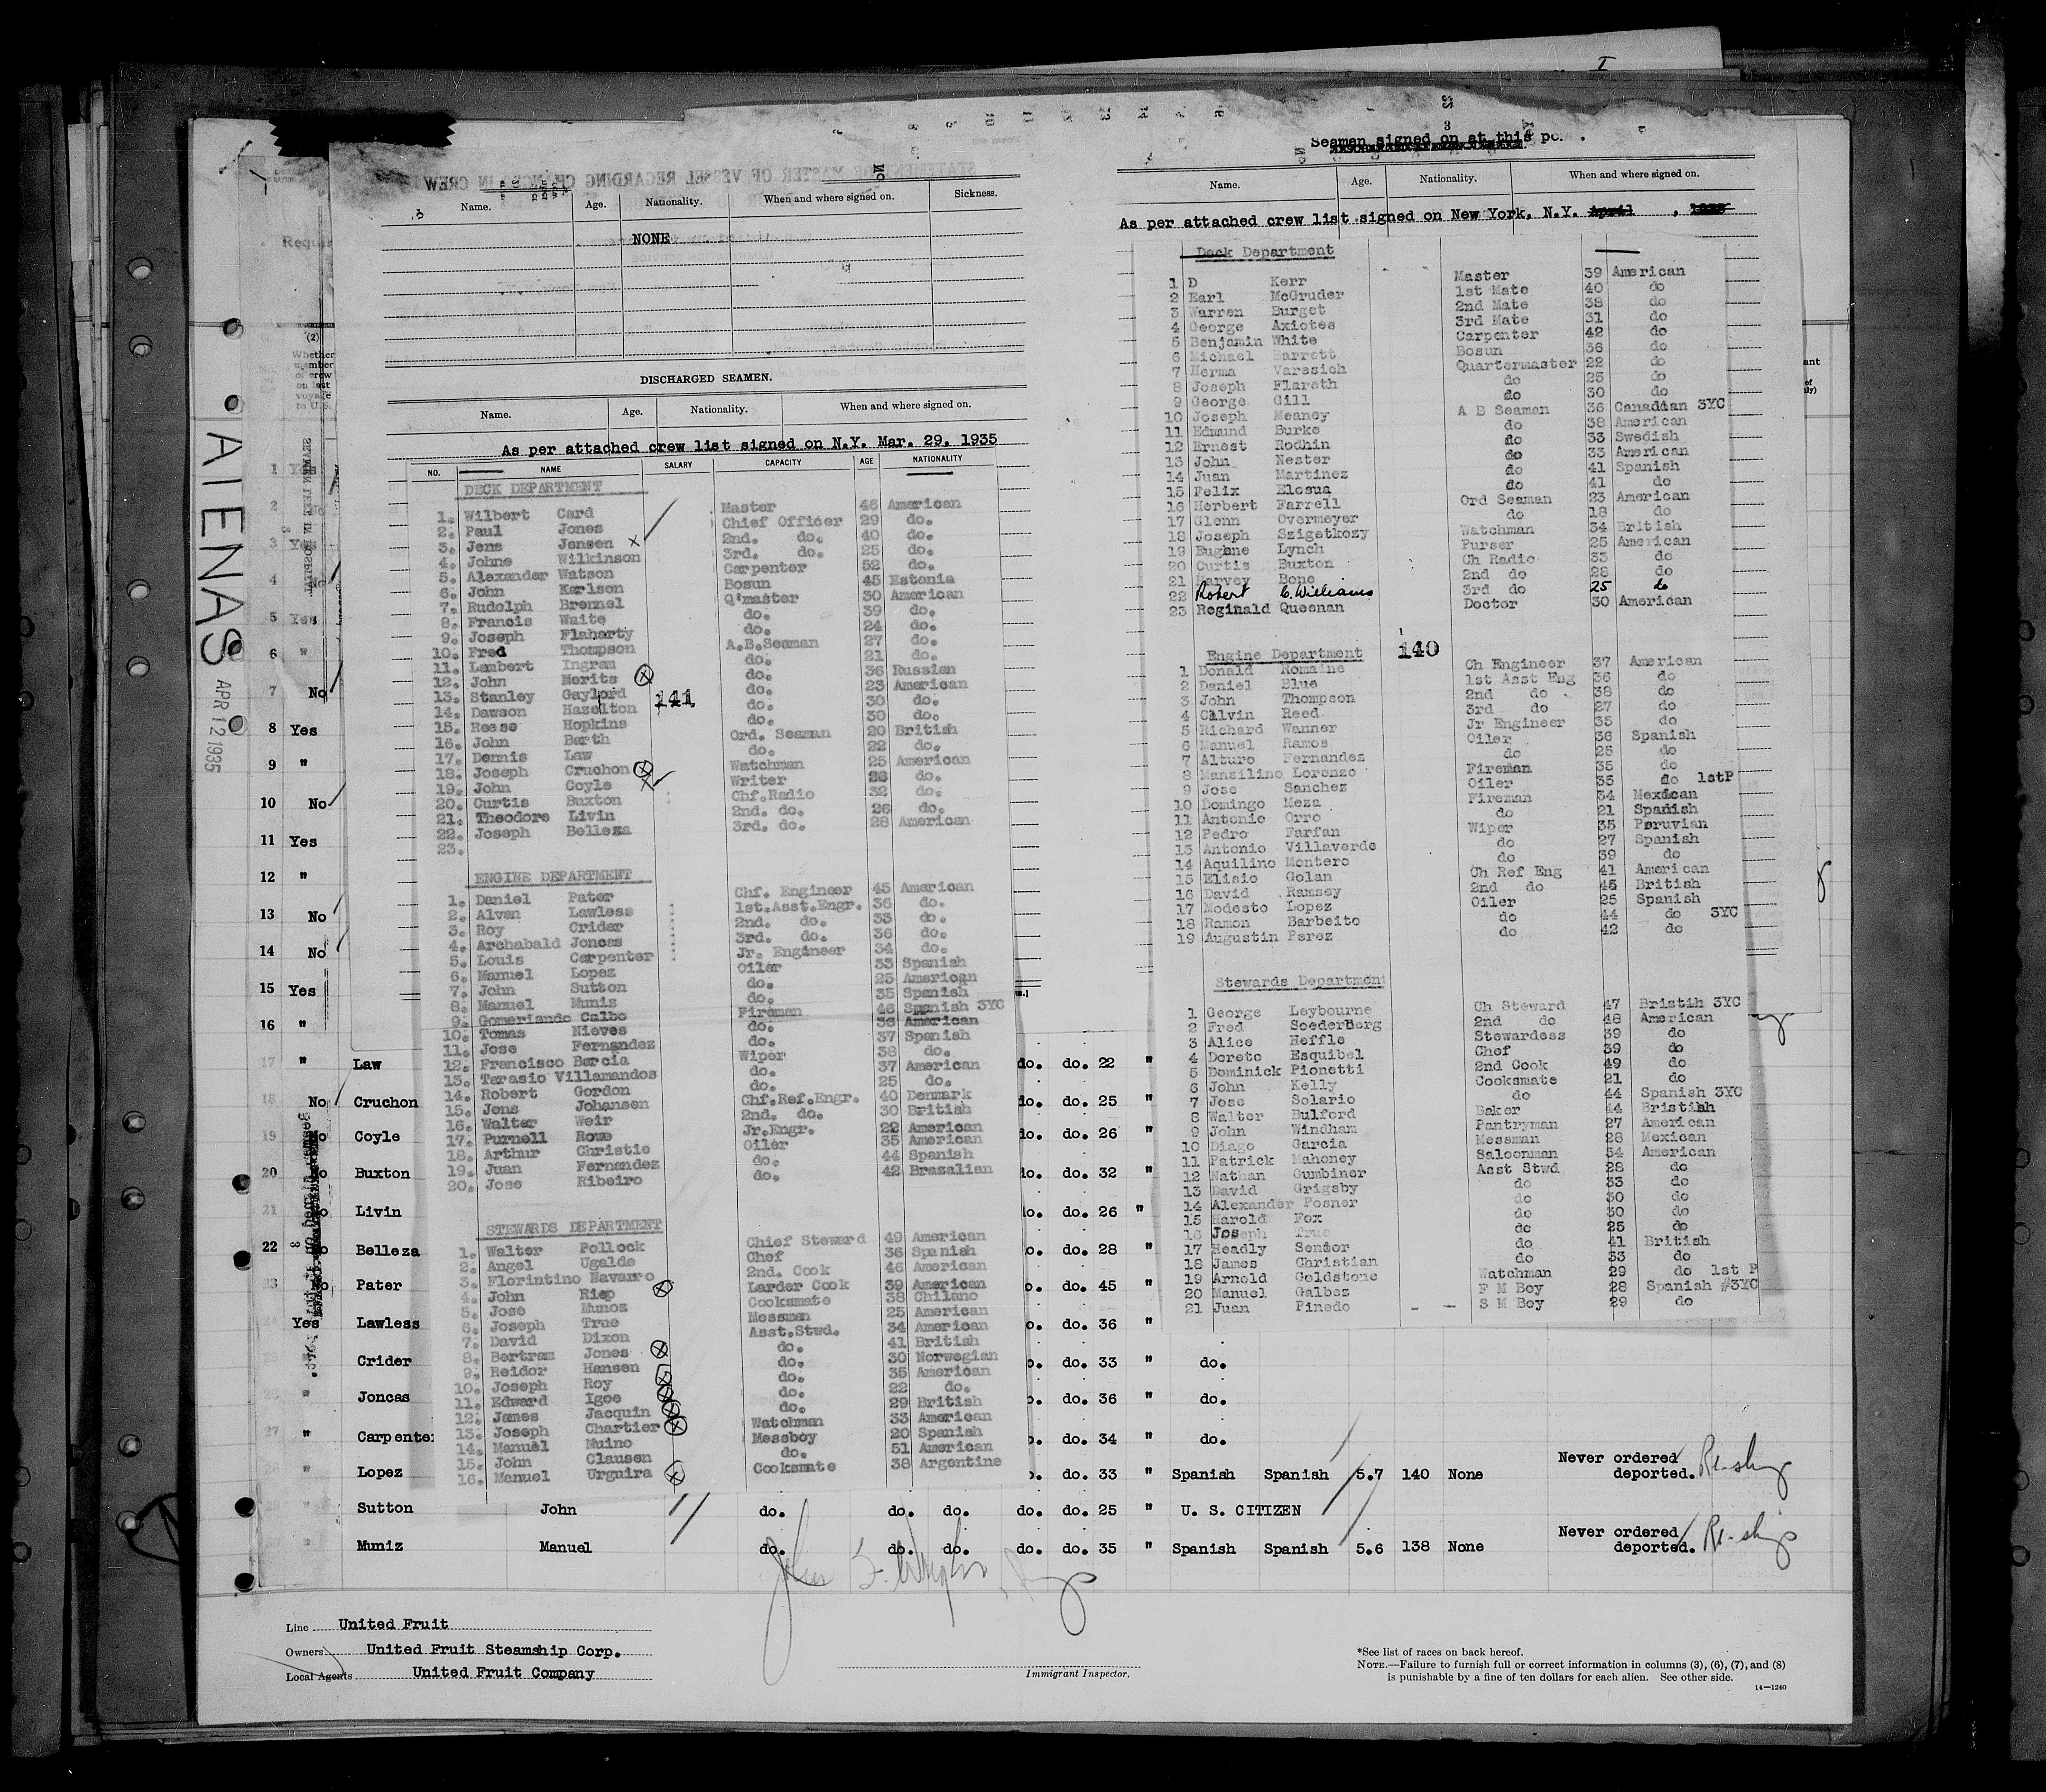 Seamen signed on at this
Name. Age. Nationality. When and where signed on. Sickness.
NONE
DISCHARGED SEAMEN.
Name. Age. Nationality. When and where signed on.
As per attached crew list signed on N.Y. Mar. 29, 1935
NO. NAME SALARY CAPACITY AGE NATIONALITY
DECK DEPARTMENT
1. Wilbert Card Master 46 American
2. Paul Jones Chief Officer 29 do.
3. Jens Jensen x 2nd. do. 40 do.
4. Johne Wilkinson 3rd. do. 25 do.
5. Alexander Watson Carpenter 52 do.
6. John Karlson Bosun 45 Estonia
7. Rudolph Bremel Q'master 30 American
8. Francis Waite do. 39 do.
9. Joseph Flaharty do. 24 do.
10. Fred Thompson A.B.Seaman 27 do.
11. Lambert Ingram do. 21 do.
12. John Merits do. 36 Russian
13. Stanley Gaylord do. 23 American
14. Dawson Hazelton 141 do. 30 do.
15. Reese Hopkins do. 30 do.
16. John Barth Ord. Seaman 20 British
17. Dennis Law do. 22 do.
18. Joseph Cruchon Watchman 25 American
19. John Coyle Writer 26 do.
20. Curtis Buxton Chf.Radio 32 do.
21. Theodore Livin 2nd. do. 26 do.
22. Joseph Belleza 3rd. do. 28 American
23.
ENGINE DEPARTMENT
1. Daniel Pater Chf. Engineer 45 American
2. Alvan Lawless 1st.Asst.Engr. 36 do.
3. Roy Crider 2nd. do. 33 do.
4. Archabald Joncas 3rd. do. 36 do.
5. Louis Carpenter Jr. Engineer 34 do.
6. Manuel Lopez Oiler 33 Spanish
7. John Sutton do. 25 American
8. Manuel Muniz do. 35 Spanish
9. Gomeriando Calbo Fireman 46 Spanish 3YC
10. Tomas Nieves do. 36 American
11. Jose Fernandez do. 37 Spanish
12. Francisco Barcia Wiper 38 do.
13. Tarasio Villamandos do. 37 American
14. Robert Gordon do. 25 do.
15. Jens Johansen Chf.Ref.Engr. 40 Denmark
16. Walter Weir 2nd. do. 30 British
17. Purnell Rowe Jr.Engr. 22 American
18. Arthur Christie Oiler 35 American
19. Juan Fernandez do. 44 Spanish
20. Jose Ribeiro do. 42 Brazalian
STEWARDS DEPARTMENT
1. Walter Pollock Chief Steward 49 American
2. Angel Ugalde Chef 36 Spanish
3. Florintino Navarro 2nd. Cook 46 American
4. John Riep Larder Cook 39 American
5. Jose Munoz Cooksmate 38 Chilano
6. Joseph True Messman 25 American
7. David Dixon Asst.Stwd. 34 American
8. Bertram Jones do. 41 British
9. Reidor Hansen do. 30 Norwegian
10. Joseph Roy do. 35 American
11. Edward Igoe do. 22 do.
12. James Jacquin do. 29 British
13. Joseph Chartier Watchman 33 American
14. Manuel Muino Messboy 20 Spanish
15. John Clausen do. 51 American
16. Manuel Urguira Cooksmate 38 Argentine
Name. Age. Nationality. When and where signed on.
As per attached crew list signed on New York, N.Y. April , 1935
Deck Department
1 D Kerr Master 39 American
2 Earl McGruder 1st Mate 40 do
3 Warren Burget 2nd Mate 38 do
4 George Axiotes 3rd Mate 31 do
5 Benjamin White Carpenter 42 do
6 Michael Barrett Bosun 36 do
7 Herma Varesich Quartermaster 22 do
8 Joseph Flareth do 25 do
9 George Gill do 30 do
10 Joseph Meaney A B Seaman 36 Canadian 3YC
11 Edmund Burke do 38 American
12 Ernest Rodhin do 33 Swedish
13 John Nester do 33 American
14 Juan Martinez do 41 Spanish
15 Felix Elosua do 41 do
16 Herbert Farrell Ord Seaman 23 American
17 Glenn Overmeyer do 18 do
18 Joseph Szigetkozy Watchman 34 British
19 Eugene Lynch Purser 25 American
20 Curtis Buxton Ch Radio 33 do
21 Harvey Bone 2nd do 28 do
22 Robert C. Williams 3rd do 25 do
23 Reginald Queenan Doctor 30 American
Engine Department 140
1 Donald Romaine Ch Engineer 37 American
2 Daniel Blue 1st Asst Eng 36 do
3 John Thompson 2nd do 38 do
4 Calvin Reed 3rd do 27 do
5 Richard Wanner Jr Engineer 35 do
6 Manuel Ramos Oiler 36 Spanish
7 Alturo Fernandez do 25 do
8 Mansilino Lorenzo Fireman 35 do
9 Jose Sanchez Oiler 35 do 1stP
10 Domingo Meza Fireman 34 Mexican
11 Antonio Orro do 21 Spanish
12 Pedro Farfan Wiper 35 Peruvian
13 Antonio Villaverde do 27 Spanish
14 Aquilino Montero do 39 do
15 Elisio Golan Ch Ref Eng 41 American
16 David Ramsey 2nd do 45 British
17 Modesto Lopez Oiler 25 Spanish
18 Ramon Barbeito do 44 do 3YC
19 Augustin Perez do 42 do
Stewards Department
1 George Leybourne Ch Steward 47 Bristih 3YC
2 Fred Soederberg 2nd do 48 American
3 Alice Heffle Stewardess 39 do
4 Doreto Esquibel Chef 39 do
5 Dominick Pionetti 2nd Cook 49 do
6 John Kelly Cooksmate 21 do
7 Jose Solario do 44 Spanish 3YC
8 Walter Bulford Baker 44 Bristish
9 John Windham Pantryman 27 American
10 Diago Garcia Messman 28 Mexican
11 Patrick Mahoney Saloonman 54 American
12 Nathan Gumbiner Asst Stwd 28 do
13 David Grigsby do 33 do
14 Alexander Posner do 30 do
15 Harold Fox do 30 do
16 Joseph True do 25 do
17 Headly Senior do 41 British
18 James Christian do 33 do
19 Arnold Goldstone Watchman 29 do 1st P
20 Manuel Galbez F M Boy 28 Spanish #3YC
21 Juan Pinedo S M Boy 29 do
AIENAS APR 12 1935
(2)
Whether member of crew on last voyage to U.S.
1 Yes
2 No
3 Yes
4 No
5 Yes
6 "
7 No
8 Yes
9 "
10 No
11 Yes
12 "
13 No
14 No
15 Yes
16 "
17 " Law do. do. 22 "
18 No Cruchon do. do. 25 "
19 No Coyle do. do. 26 "
20 No Buxton do. do. 32 "
21 No Livin do. do. 26 "
22 No Belleza do. do. 28 "
23 No Pater do. do. 45 "
24 Yes Lawless do. do. 36 "
Crider do. do. 33 " do.
" Joncas do. do. 36 " do.
27 " Carpenter do. do. 34 " do.
Lopez do. do. 33 " Spanish Spanish 5.7 140 None Never ordered deported. Re-ships
" Sutton John do. do. do. do. do. 25 " U. S. CITIZEN
Muniz Manuel do. do. do. do. do. 35 " Spanish Spanish 5.6 138 None Never ordered deported. Re-ships
Line United Fruit
Owners United Fruit Steamship Corp.
Local Agents United Fruit Company
Immigrant Inspector.
*See list of races on back hereof.
NOTE.—Failure to furnish full or correct information in columns (3), (6), (7), and (8)
is punishable by a fine of ten dollars for each alien. See other side.
14—1240